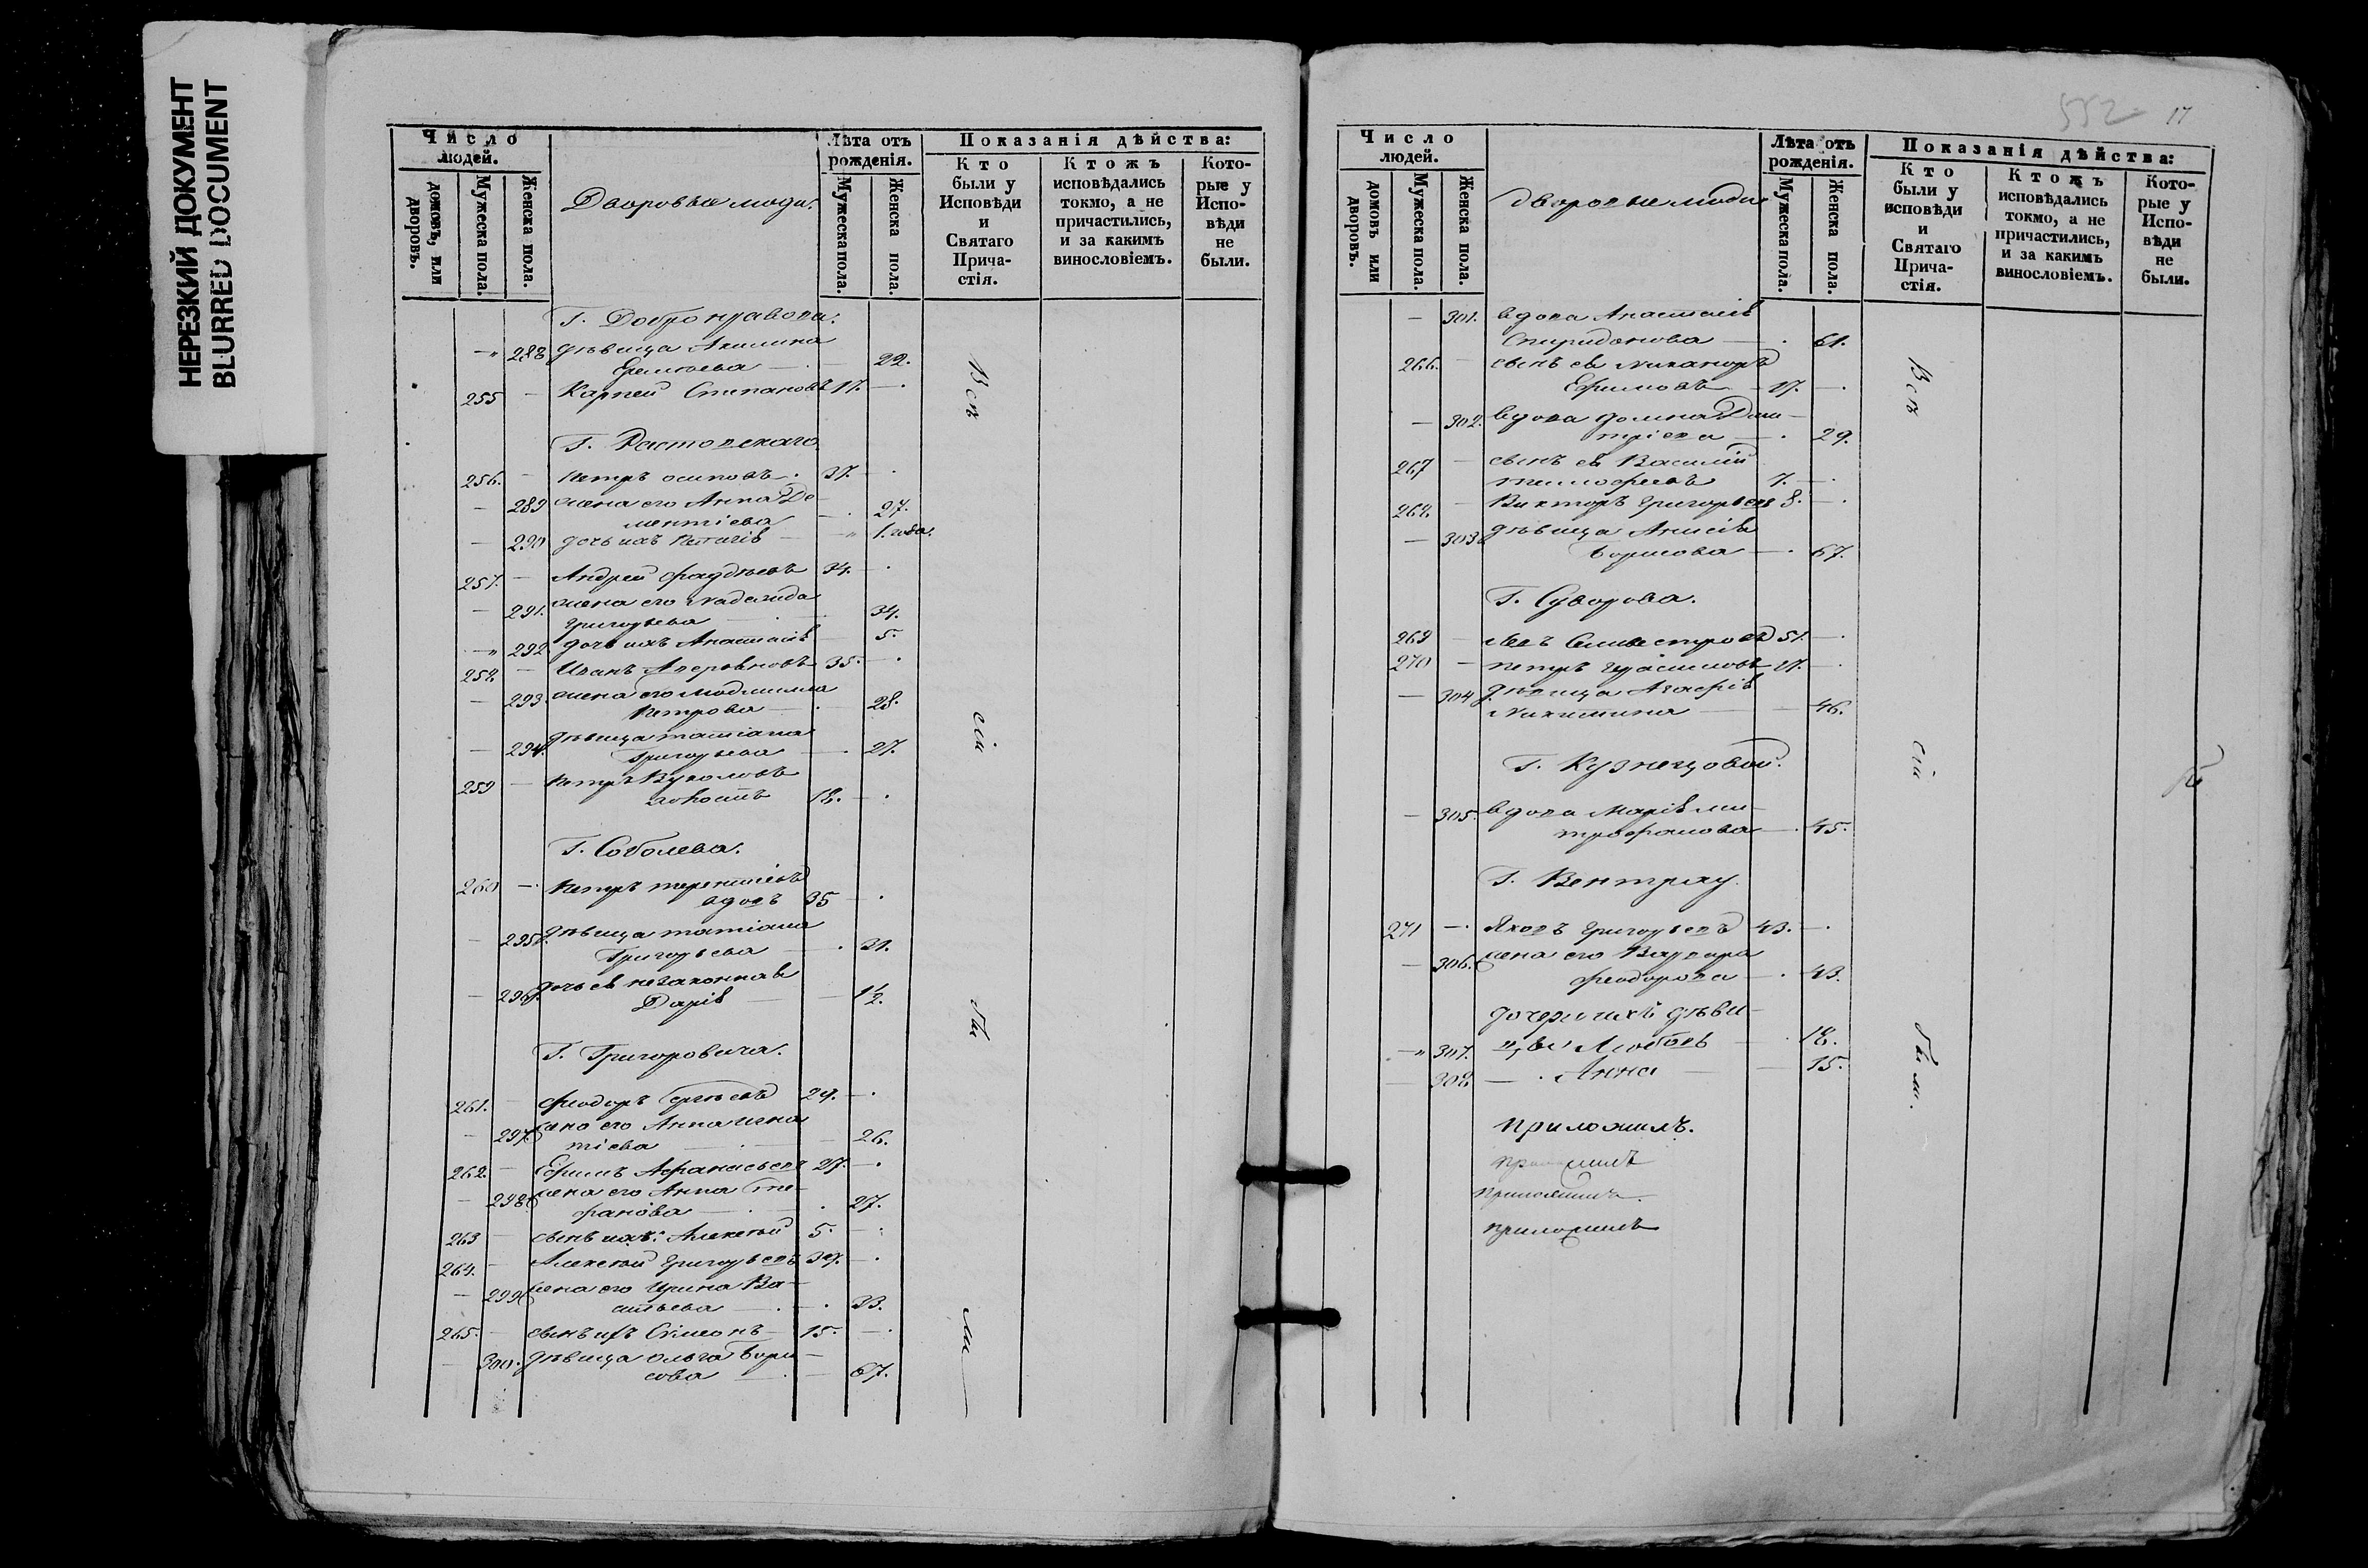 НЕРЕЗКИЙ ДОКУМЕНТ
BLURRED DOCUMENT
Число людей.
домовъ, или дворовъ.
Мужеска пола.
Женска пола.
Дворовые люди.
Лѣта отъ рожденія.
Мужеска пола.
Женска пола.
Показанія дѣйства:
Кто были у Исповѣди и Святаго Прича-стія.
Ктожъ исповѣдались токмо, а не причастились, и за какимъ винословіемъ.
Кото-рые у Испо-вѣди не были.
Г. Добронравова.
288 дѣвица Акилина
22.
255 Карпей Степановъ 17.
Г. Растовскаго
256. Петръ Осиповъ 37.
289 жена его Анна Де-
ментіева 27.
290 дочь ихъ 1. года.
257. Андрей Фадѣевъ 34.
291. жена его Надежда
Григорьева 34.
292 дочь ихъ Анастасія 5.
258. Иванъ 35.
293. жена его Людмила
Петрова 28.
294. дѣвица Татіана
Григорьева 27.
259 Петръ Вуколовъ
холостъ 18.
Г. Соболева.
260 Петръ Терентіевъ
вдовъ 35
295. дѣвица Татіана
Григорьева 31.
296. дочь ея незаконная
Дарія 1 1/2.
Г. Григоровича.
261. Феодоръ Сергѣевъ 29.
297. жена его Анна Игна
тіева 26.
262. Ефимъ Афанасьевъ 27.
298. жена его Анна Сте-
фанова 27.
263 сынъ ихъ Алексѣй 5.
264. Алексѣй Григорьевъ 37.
299. жена его Ирина Ва-
сильева 33.
265. сынъ ихъ Сѵмеонъ 15.
300. дѣвица Ольга Бори-
сова 67.
Всѣ
сіи
бы
ли
552 17
Число людей.
домовъ или дворовъ.
Мужеска пола.
Женска пола.
Дворовые люди
Лѣта отъ рожденія.
Мужеска пола.
Женска пола.
Показанія дѣйства:
Кто были у исповѣди и Святаго Прича-стія.
Ктожъ исповѣдались токмо, а не причастились, и за какимъ винословіемъ.
Кото-рые у Испо-вѣди не были.
301. вдова Анастасія
Спиридонова 61.
266. сынъ ея Никаноръ
Ефимовъ 17.
302. вдова Домна Дми-
тріева 29.
267 сынъ ея Василій
Тимофеевъ 7.
268. Викторъ Григорьевъ 8.
303 дѣвица Анисія
Борисова 67.
Г. Суворова.
269 Левъ Селивестровъ 51.
270 Петръ Герасимовъ 27.
304 дѣвица Агафія
Никитина 46.
Г. Кузнецовой.
305. вдова Марія Ми-
трофанова 45.
Г. Вентрау.
271 Яковъ Григорьевъ 43.
306. жена его Варвара
Феодорова 43.
дочери ихъ дѣви-
307. цы Любовь 18.
308. Анна 15.
приложилъ.
приложилъ
приложилъ.
приложилъ
Всѣ
сіи
были.